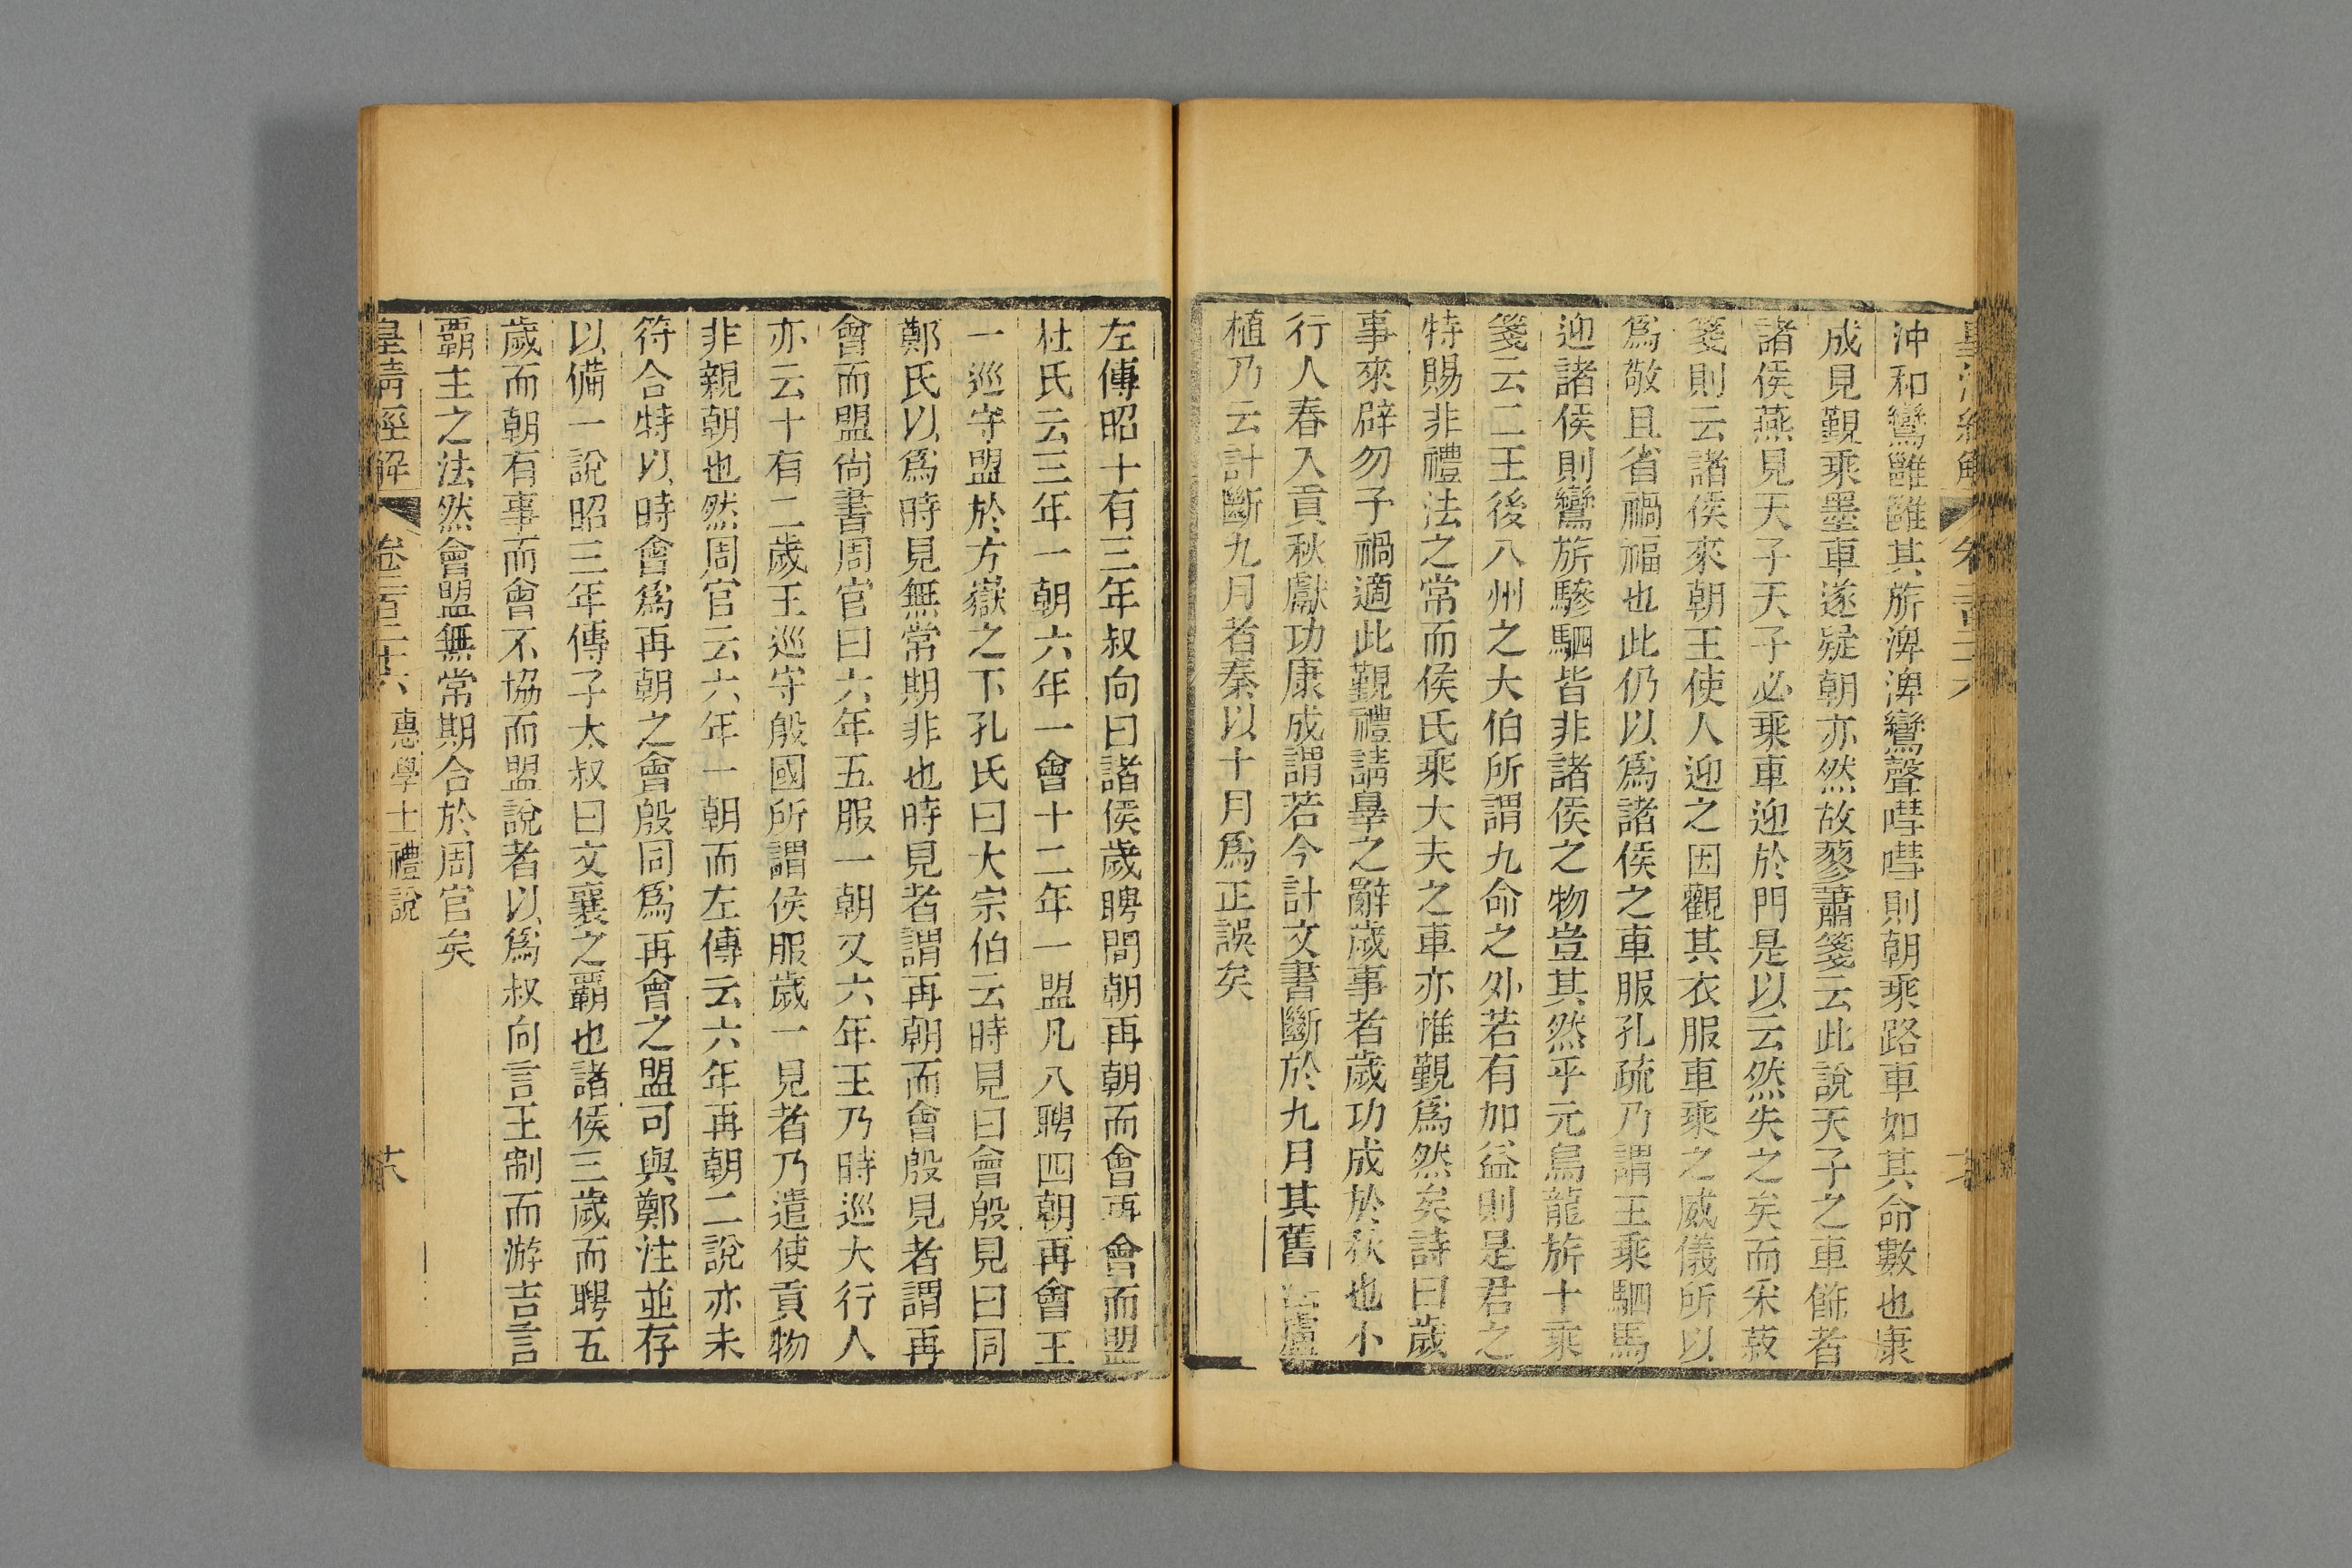 沖和鸞雝雝其旂淠淠鸞聲嘒嘒則朝乘路車如其命數也康
成見覲乘墨車遂疑朝亦然故蓼蕭箋云此說天子之車飾者
諸侯燕見天子天子必乘車迎於門是以云然失之矣而采菽
箋則云諸侯來朝王使人迎之因觀其衣服車乘之威儀所以
爲敬且省禍福也此仍以爲諸侯之車服孔疏乃謂王乘駟馬
迎諸侯則鸞旂驂駟皆非諸侯之物豈其然乎元鳥龍旂十乘
箋云二王後八州之大伯所謂九命之外若有加益則是君之
特賜非禮法之常而侯氏乘大夫之車亦惟覲爲然矣詩曰歲
事來辟勿予禍適此覲禮請辠之辭歲事者歲功成於秋也小
行人春入貢秋獻功康成謂若今計文書斷於九月其舊法盧
植乃云計斷九月者秦以十月爲正誤矣
左傳昭十有三年叔向曰諸侯歲聘間朝再朝而會再會而盟
杜氏云三年一朝六年一會十二年一盟凡八聘四朝再會王
一巡守盟於方嶽之下孔氏曰大宗伯云時見曰會殷見曰同
鄭氏以爲時見無常期非也時見者謂再朝而會殷見者謂再
會而盟尙書周官曰六年五服一朝又六年王乃時巡大行人
亦云十有二歲王巡守殷國所謂侯服歲一見者乃遣使貢物
非親朝也然周官云六年一朝而左傳云六年再朝二說亦未
符合特以時會爲再朝之會殷同爲再會之盟可與鄭注並存
以備一說昭三年傳子太叔曰文襄之霸也諸侯三歲而聘五
歲而朝有事而會不協而盟說者以爲叔向言王制而游吉言
霸主之法然會盟無常期合於周官矣
皇清經解 卷二百二十六 惠學士禮說 十八